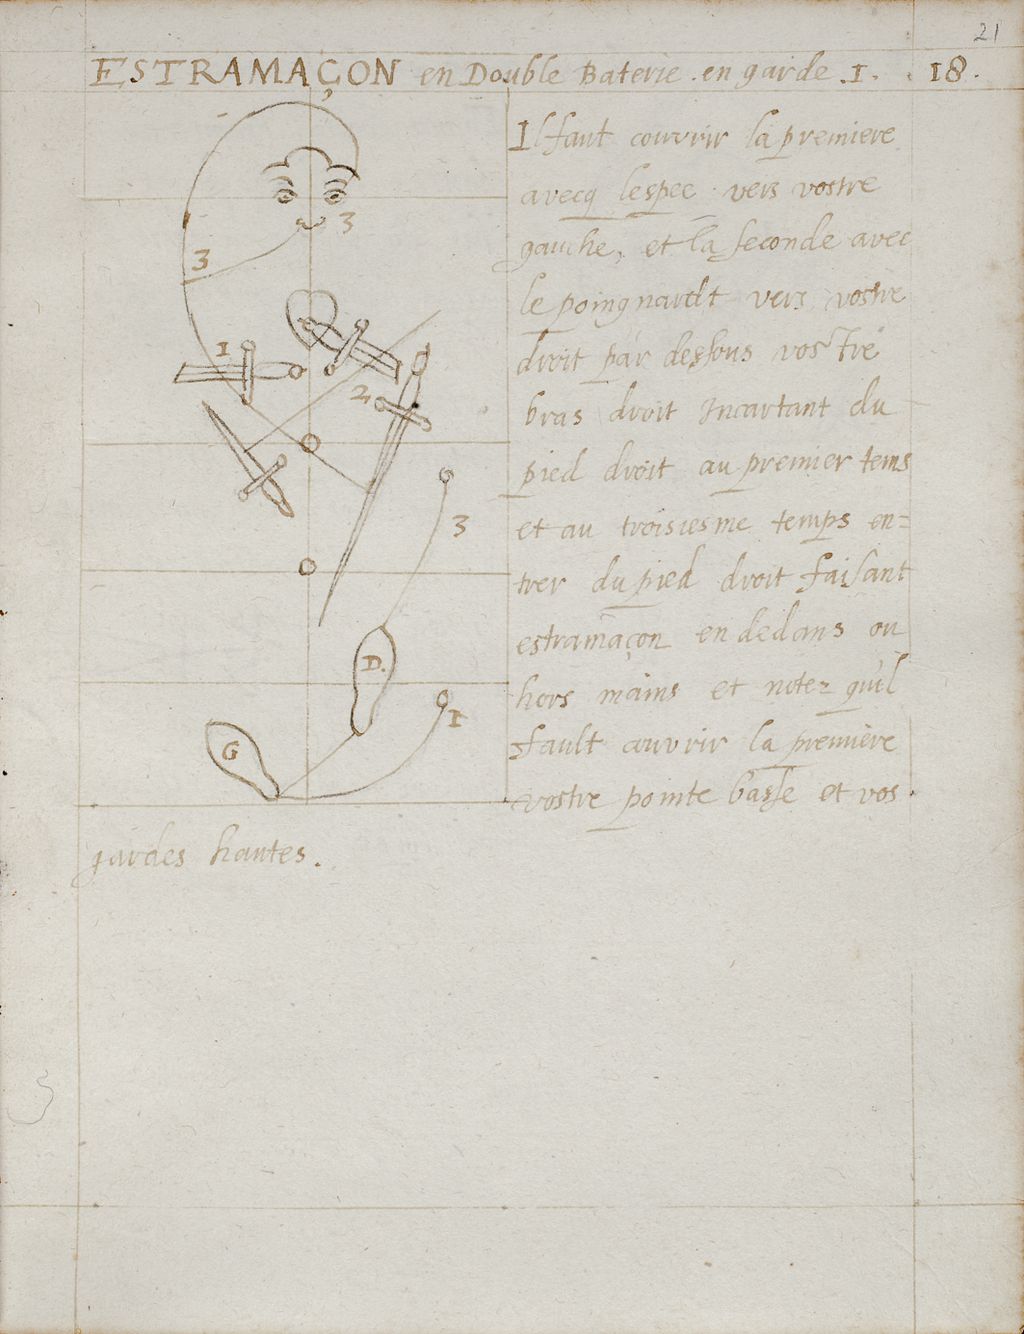 21
ESTRAMAÇON en Double Baterie . en garde . 1 . . 18 .
Il faut couvrir la premiere
avecq lespee vers vostre
gauche, et la seconde avec
le poingnardt vers vostre
droit par dessous vostre
bras droit incartant du
pied droit au premier tems
et au troisiesme temps en=
trer du pied droit faisant
estramaçon en dedans ou
hors mains et notez quil
fault couvrir la première
vostre pointe basse et vos
gardes hautes .
3
3
1
2
3
D.
1
G